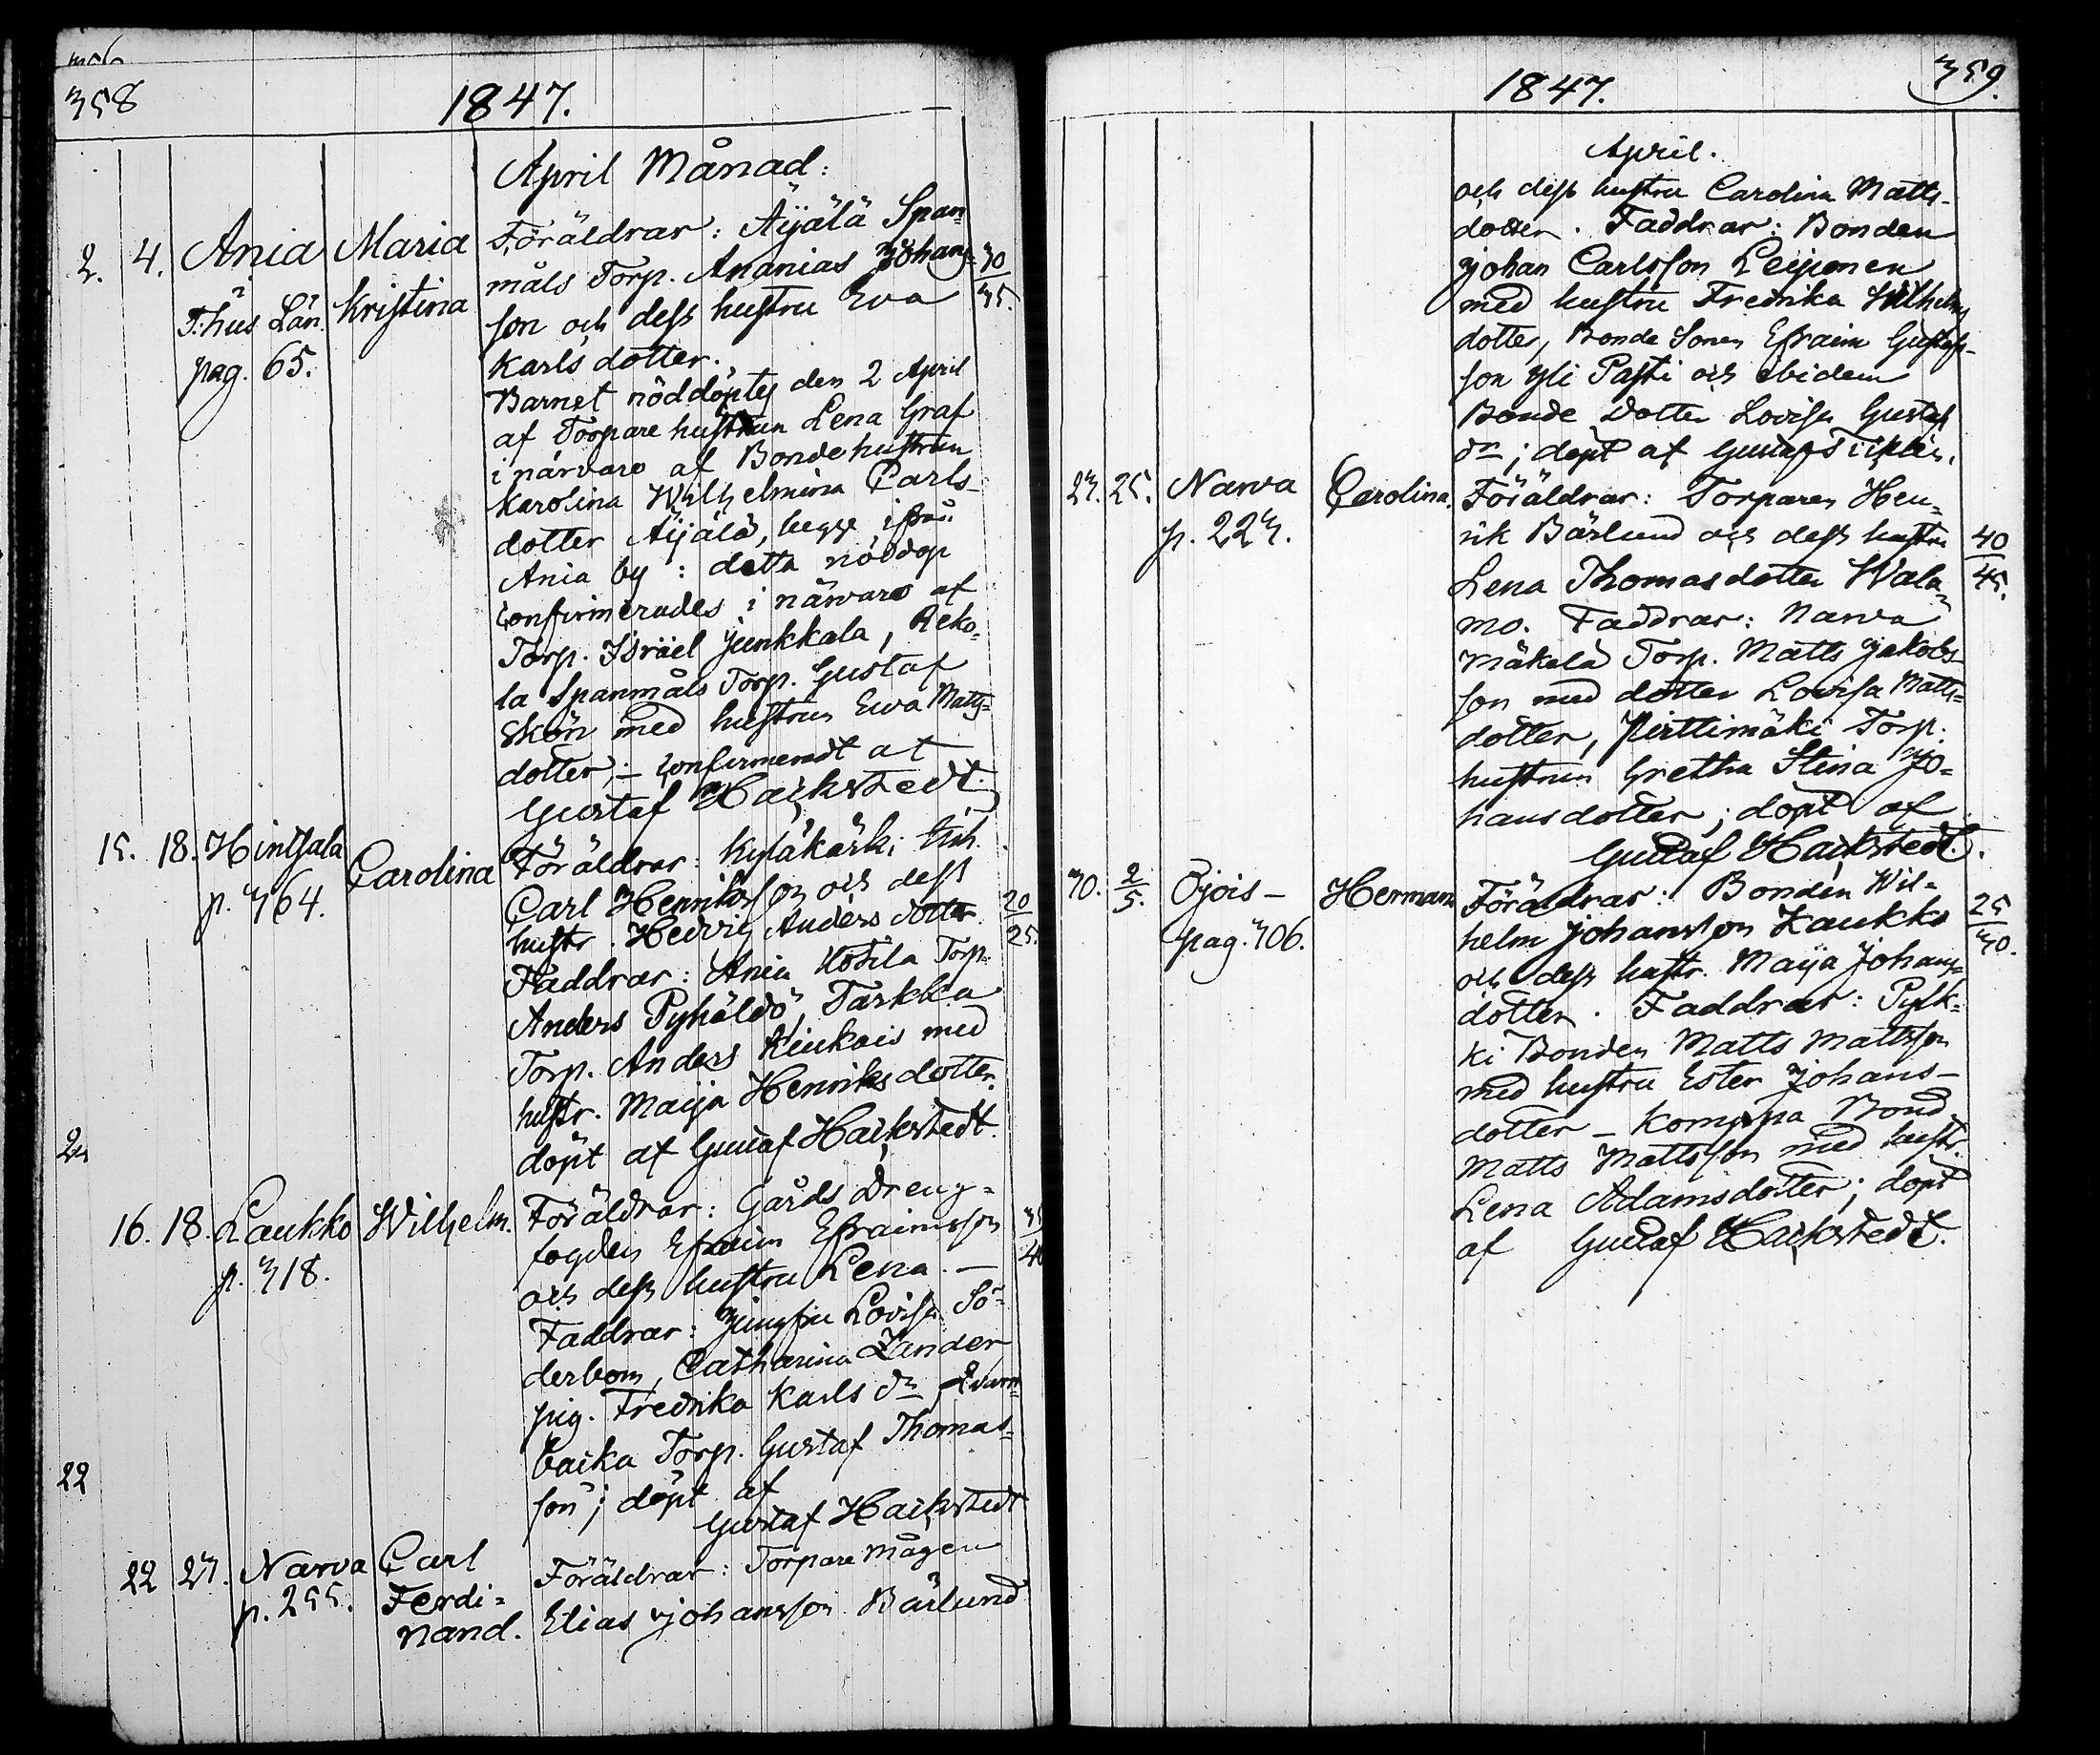 358
1847.
April Månad:
2. 4. Ania Maria Föräldrar: Äijälä Span-
i Kristina måls Torp. Ananias Johans- 30
T:hus Län. son och dess hustru Eva 35.
pag. 65. Karls dotter.
Barnet nöddöptes den 2 April
af Torpare hustrun Lena Graf
i närvaro af Bondehustrun
Karolina Wilhelmina Carls-
dotter Äijälä, begge ifrån
Ania by: detta nöddop
confirmerades i närvaro af
Torp. Israel Junkkala, Reko-
la Spanmåls Torp. Gustaf
Skön med hustrun Ewa Matts-
dotter; – confirmeradt at
Gustaf Hackstedt.
15. 18. Hintsala Carolina Föräldrar: Kyläkärki Inh.
p. 364. Carl Henriksson och dess 20
hustr. Hedvig Anders dotter 25.
Faddrar: Ania Kotila Torp.
Anders Pyhäldö, Tarkka
Torp. Anders Kiukais med
hustr. Maija Henriks dotter.
döpt af Gustaf Hackstedt.
16. 18. Laukko Wilhelm. Föräldrar: Gårds Dreng- 35
p. 318. fogden Efraim Efraimsson 40
och dess hustru Lena. —
Faddrar: Jungfru Lovisa Sö-
derbom, Catharina Zander
pig. Fredrika Karls dr,
backa Torp. Gustaf Thomas-
son; döpt af
Gustaf Hackstedt
22
22 23. Narva Carl Föräldrar: Torpare Mågen
p. 255. Ferdi- Elias Johansson Bärlund
nand.
359.
1847.
April.
och dess hustru Carolina Matts-
dotter. Faddrar: Bonden
Johan Carlsson Leiponen
med hustru Fredrika Wilhelms
dotter, Bonde Sonen Efraim Gustafs-
son Yli Pasti och ibidem
Bonde Dotter Lovisa Gustafs
dr; döpt af Gustaf
23. 25. Narva Carolina. Föräldrar: Torparen Hen-
p. 223. rik Bärlund och dess hustru 40
Lena Thomasdotter Wala- 45.
mo. Faddrar: Narva
Mäkelä Torp. Matts Jakobs-
son med dotter Lovisa Matts-
dotter, Pirttimäki Torp.
hustrun Gretha Stina Jo-
hansdotter; döpt af
Gustaf Hackstedt.
30. 2/5. Ojois – Herman Föräldrar: Bonden Wil- 25
pag. 306. helm Johansson Kaukko 30.
och dess hustr. Maija Johans-
dotter. Faddrar: Pylk-
ki Bonden Matts Mattsson
med hustru Ester Johans-
dotter – Komppa Bond.
Matts Mattsson med hustr.
Lena Adamsdotter; döpt
af Gustaf Hackstedt.